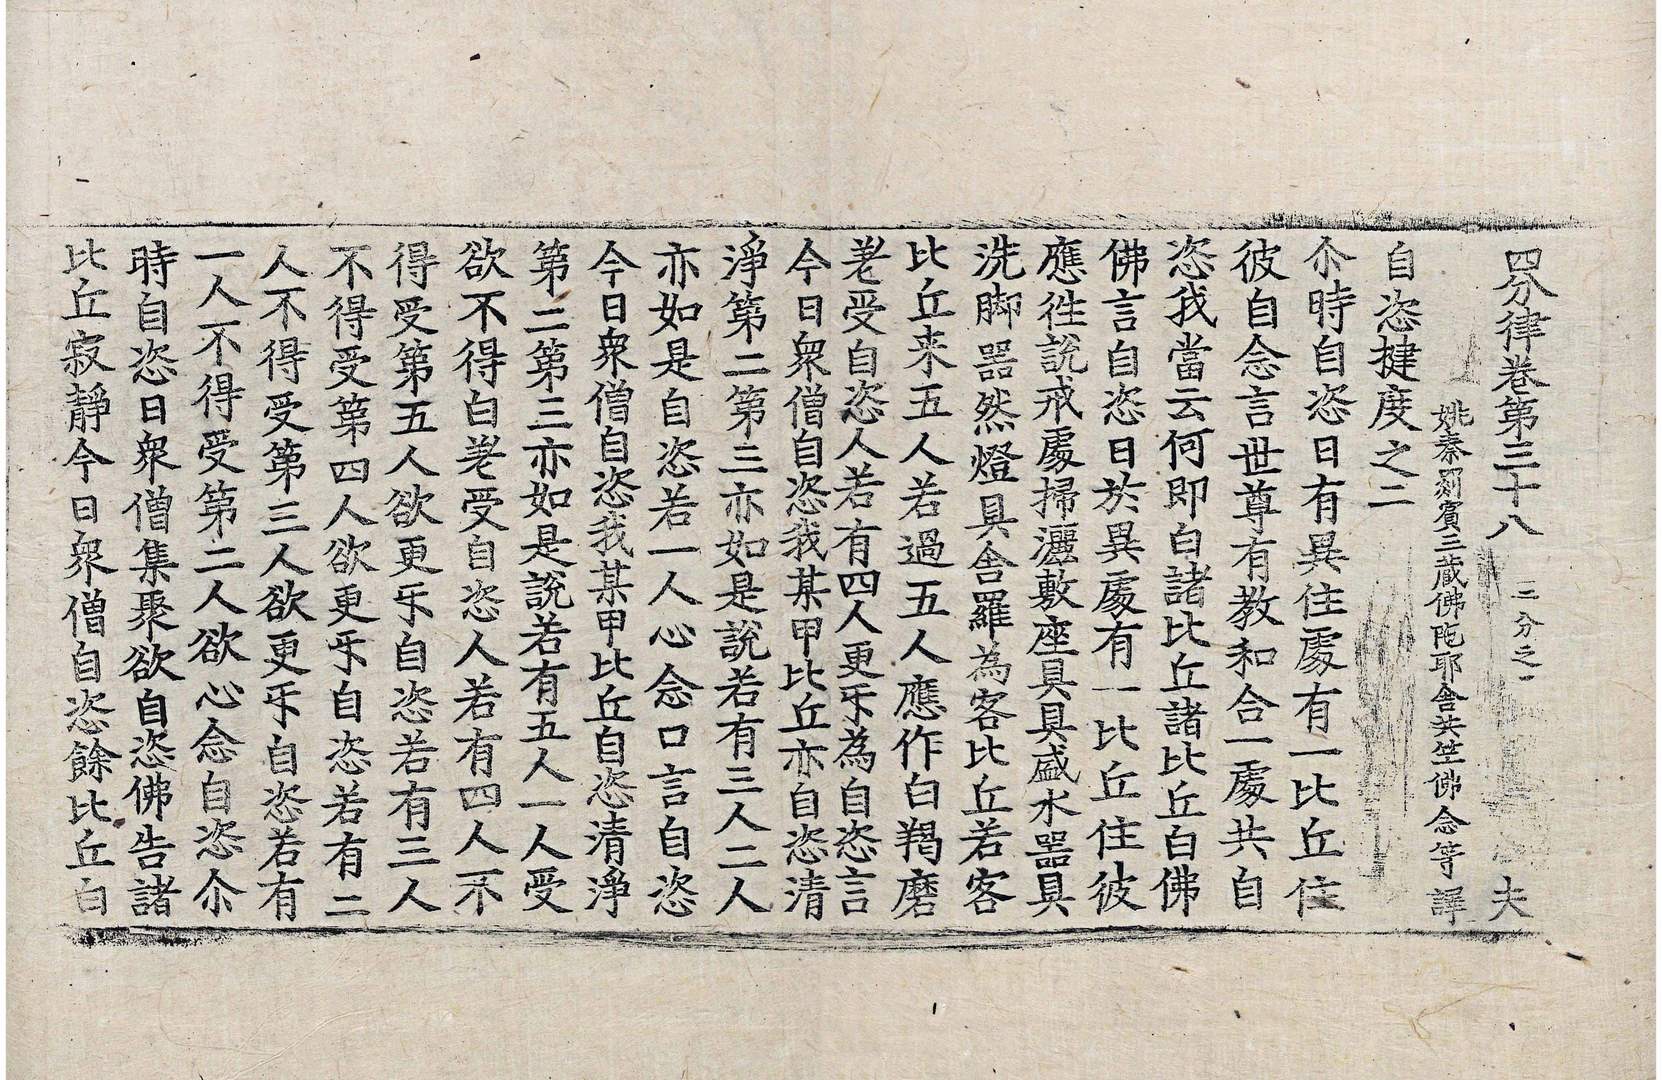 四分律卷第三十八 三分之一 夫
姚秦罽賓三藏佛陁耶舍共竺佛念等譯
自恣揵度之二
尒時自恣日有異住處有一比丘住
彼自念言世尊有教和合一處共自
恣我當云何即白諸比丘諸比丘白佛
佛言自恣日於異處有一比丘住彼
應徃說戒處掃灑敷座具具盛水器具
洗脚器然燈具舍羅為客比丘若客
比丘来五人若過五人應作白羯磨
差受自恣人若有四人更㸦為自恣言
今日衆僧自恣我某甲比丘亦自恣清
淨第二第三亦如是說若有三人二人
亦如是自恣若一人心念口言自恣
今日衆僧自恣我某甲比丘自恣清淨
第二第三亦如是說若有五人一人受
欲不得白差受自恣人若有四人不
得受第五人欲更㸦自恣若有三人
不得受第四人欲更㸦自恣若有二
人不得受第三人欲更㸦自恣若有
一人不得受第二人欲心念自恣尒
時自恣日衆僧集聚欲自恣佛告諸
比丘寂靜今日衆僧自恣餘比丘白